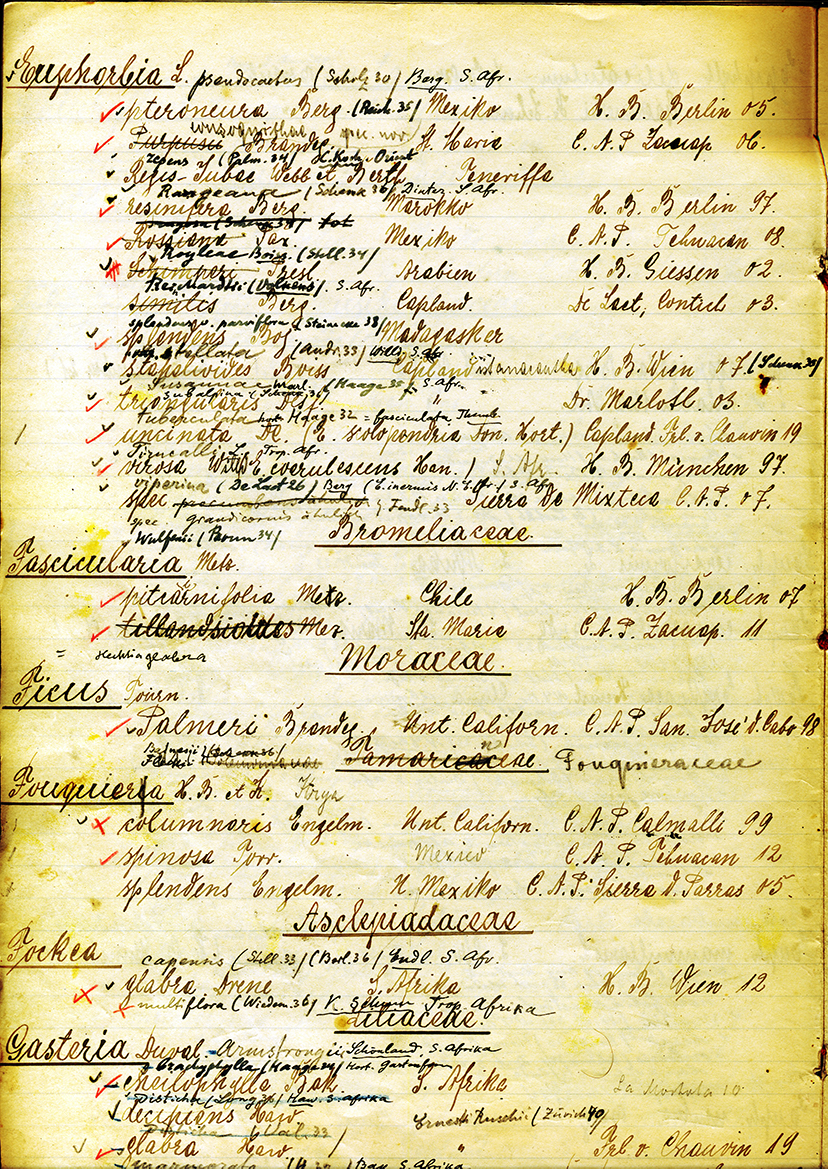 Euphorbia L. pseudocactus (Scholz 30) Berg. S. Afr.
pteroneura Berg. (Reich. 35) Mexiko H. B. Berlin 05.
Purpusii Brandeg. St. Maria C. A. P. Zacuap. 06.
repens (Palm. 34) H. Koch, Orient
Regis-Jubae Webb et Berth. Teneriffa
Rangeana (Schenk 36) Dinter, S. Afr.
resinifera Berg. Marokko H. B. Berlin 97.
Rossiana Pax. Mexiko C. A. P. Tehuacan 08.
Royleana Boiss. (Stell. 34)
Schimperi Presl. Arabien H. B. Giessen 02.
(Volkens) S. Afr.
similis Berg. Capland. De Laet, Contich 03.
splendens v. parviflora (Steinecke 38)
splendens Boj. Madagasker
stellata (Andr. 33) Willd. S. Afr.
stapelioides Boiss Capland H. B. Wien 07. (Schenk 30)
Susannae Marl. (Haage 35) S. Afr.
subalpina (Schenk 36)
triangularis Desf. " Dr. Marlotl 03.
tuberculata hort. Haage 32 = fasciculata Thunb.
uncinata DC. (E. scolopendria Don. Hort.) Capland. Frl. v. Chauvin 19
Tirucalli L. Trop. Afr.
virosa Willd. E. coerulescens Haw.) S. Afr. H. B. München 97.
viperina (De Laet 26) Berg (E. inermis N. E. Br.) S. Afr.
spec. Sierra de Mixteca C. A. P. 07.
spec. grandicornis ähnlich, Fendl. 33
Wulfenii (Baum 34) Bromeliaceae.
Fascicularia Mez.
pitcairnifolia Mez. Chile H. B. Berlin 07
tillandsioides Mez. Sta. Maria C. A. P. Zacuap. 11
= Hechtia glabra
Moraceae.
Ficus Tourn.
Palmeri Brandeg Unt. Californ. C. A. P. San. José d. Cabo 98
Tamaricaceae. Fouquieraceae
Fouquieria H. B. et K.
columnaris Engelm. Unt. Californ. C. A. P. Calmalli 99
spinosa Torr. Mexico C. A. P. Tehuacan 12
splendens Engelm. N. Mexiko C. A. P. Sierra d. Parras 05.
Asclepiadaceae
Fockea capensis (Stell. 33) (Berl. 36) Endl. S. Afr.
glabra Decne S. Afrika H. B. Wien 12
multiflora (Wiedem. 36) K. Schum Trop. Afrika
Liliaceae.
Gasteria Duval. Armstrongii Schönland. S. Afrika
brachyphylla (Haage 34) Hort.
cheilophylla Bak. S. Afrika La Mortola 10
Disticha (Lang 36) Haw. S. Afrika
decipiens Haw. Ernesti Ruschii (Zürich 40)
glabra Haw " Frl. v. Chauvin 19
marmorata Bak. S. Afrika